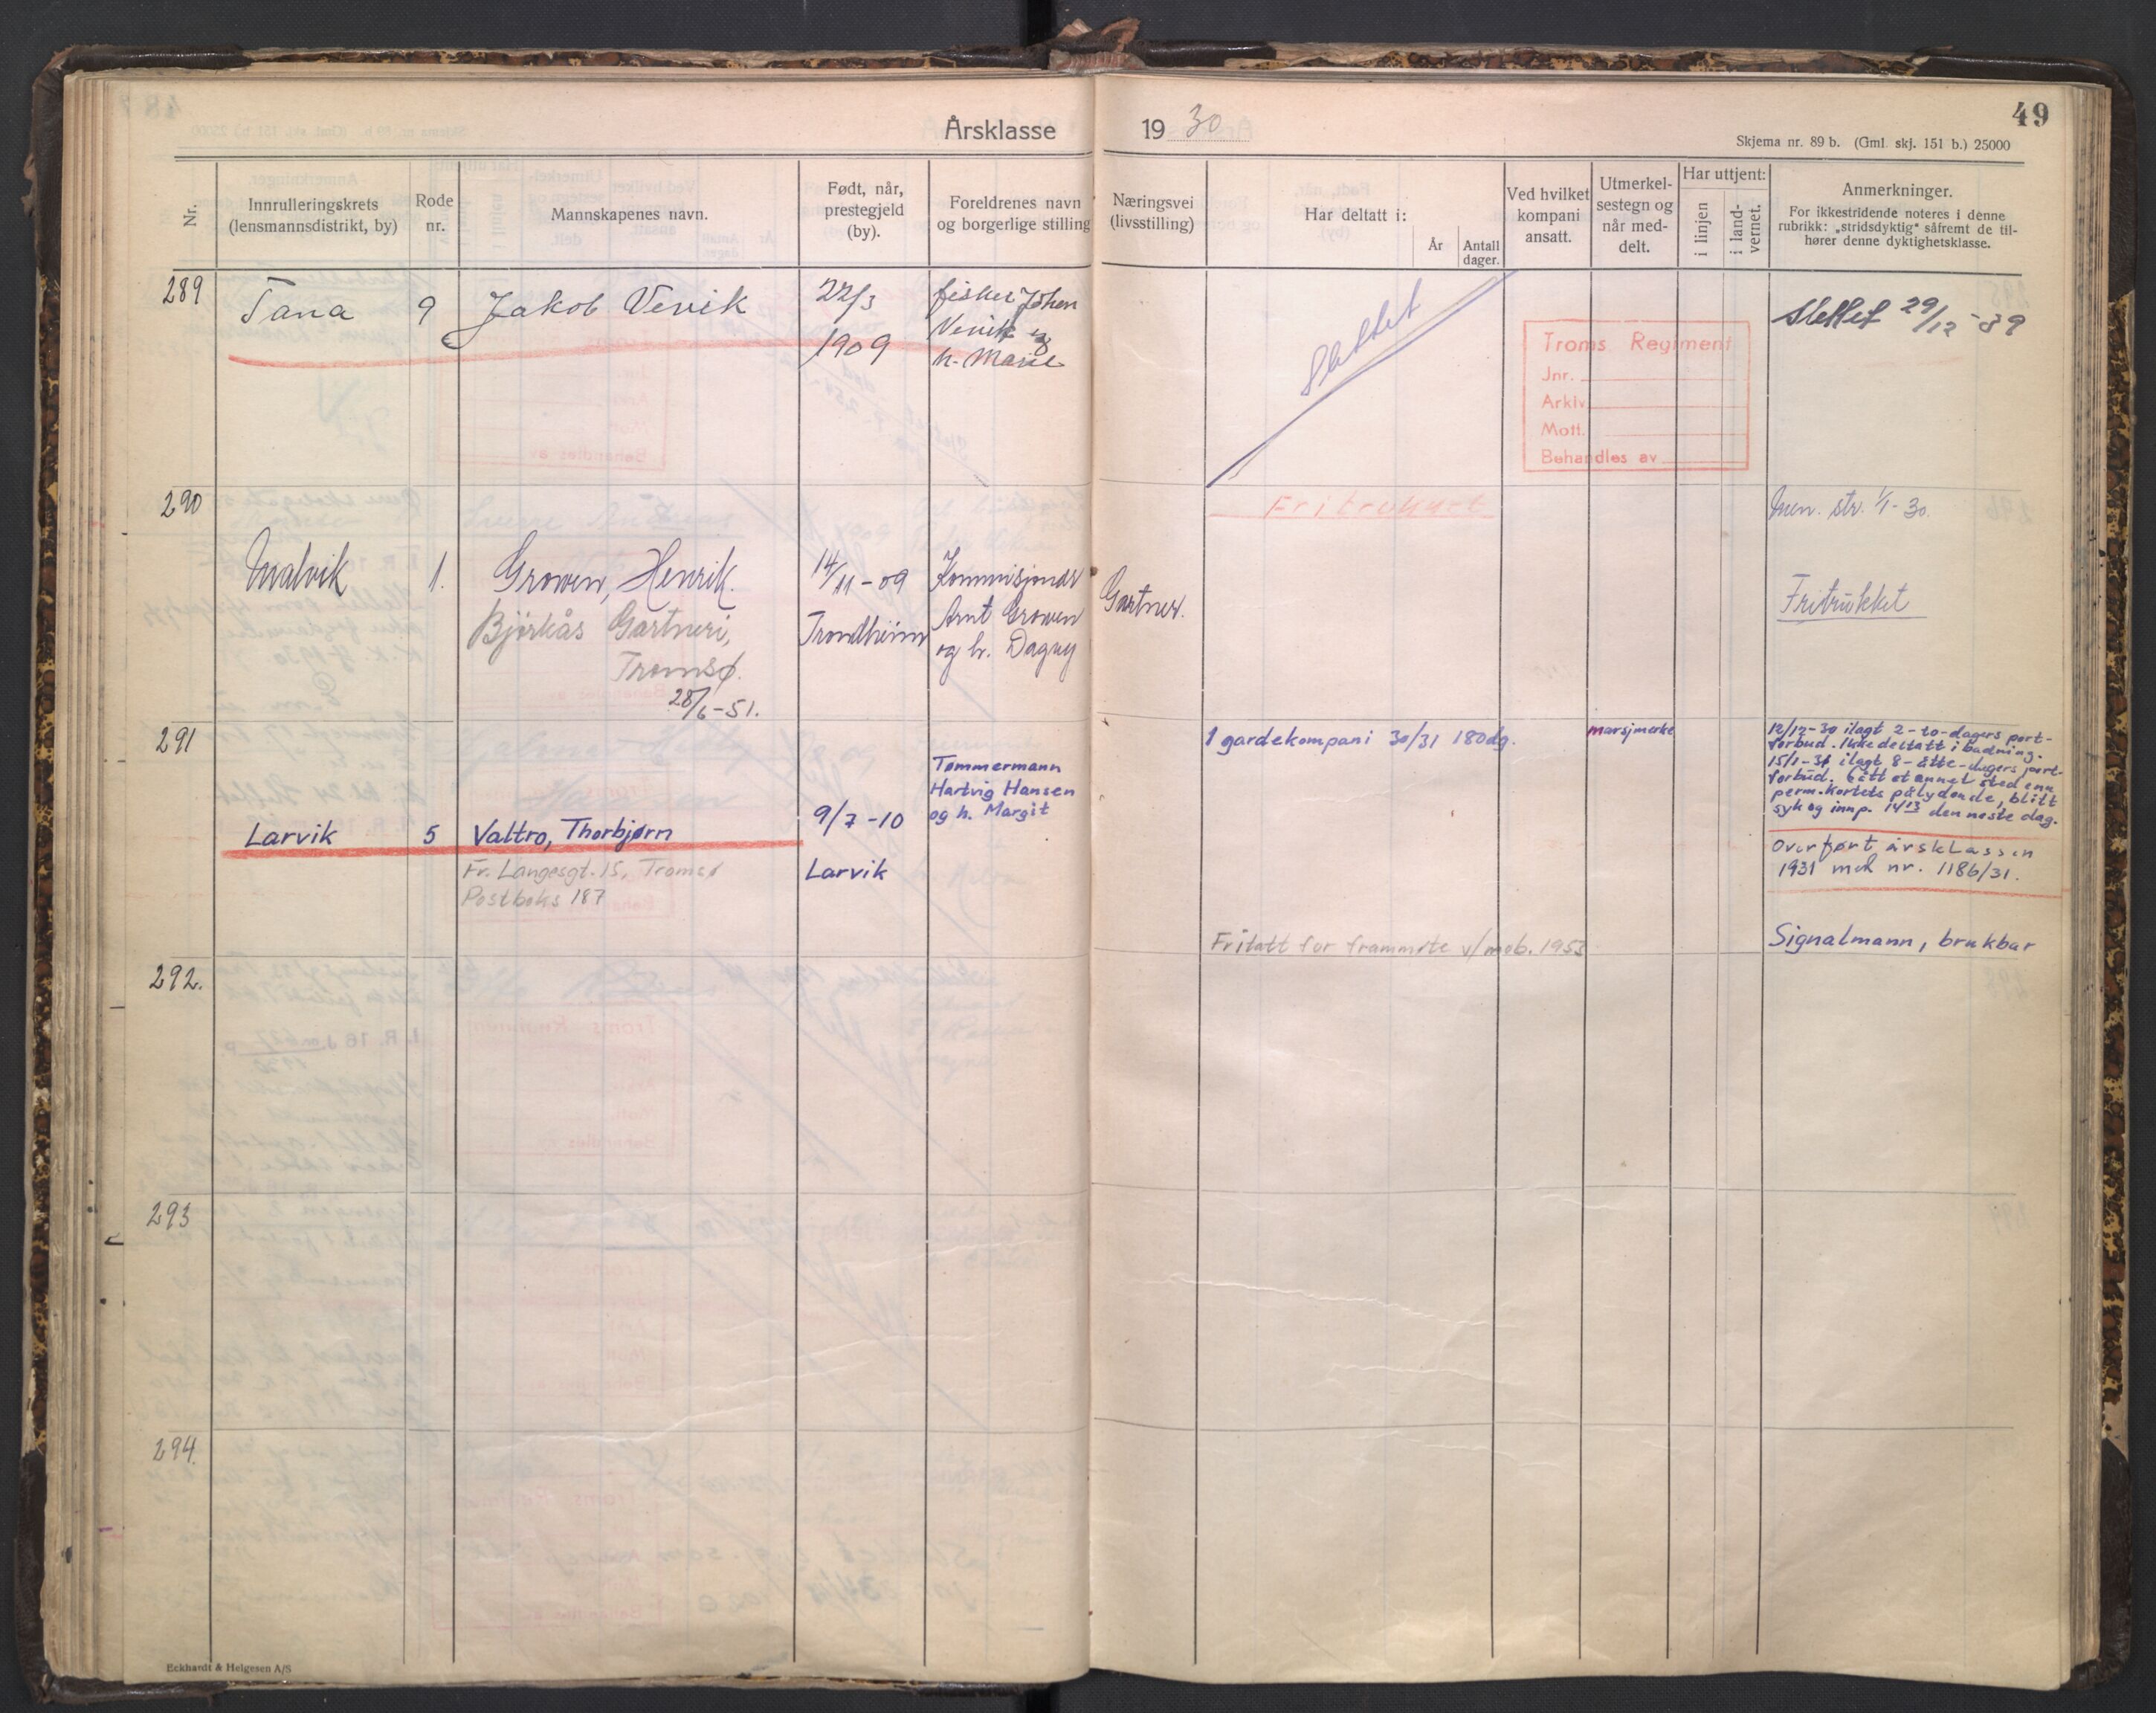 Årsklasse 1930
49
Skjema nr. 89 b. (Gml. skj. 151 b.) 25000
Nr.
Innrulleringskrets
(lensmannsdistrikt, by)
Rode
nr.
Mannskapenes navn.
Født, når,
prestegjeld
(by).
Foreldrenes navn
og borgerlige stilling
Næringsvei
(livsstilling)
Har deltatt i:
År
Antall
dager.
Ved hvilket
kompani
ansatt.
Utmerkel-
sestegn og
når med-
delt.
Har uttjent:
i linjen
i land-
vernet.
Anmerkninger.
For ikkestridende noteres i denne
rubrikk: „stridsdyktig" såfremt de til-
hører denne dyktighetsklasse.
289
Tana
9
Jakob Vevik
22/3
1909
fisker Johan
Vevik og
h. Marie
Slettet
Troms Regiment
Jnr.
Arkiv
Mott.
Behandles av
Slettet 29/12-39
290
Malvik
1.
Growen, Henrik.
Bjørkås Gartneri,
Tromsø.
28/6-51.
14/11-09
Trondheim
Kommisjonær
Arnt Growen
og h. Dagny
Gartner.
Fritrukket
Men. str. 1/1-30.
Fritrukket
291
Larvik
5
Valtro, Thorbjørn
Fr. Langesgt. 15, Tromsø
Postboks 187
9/7-10
Larvik
Tømmermann
Hartvig Hansen
og h. Margit
1 gardekompani 30/31 180dg.
Fritatt for frammøte v/mob. 1953
marsjmerke
12/12-30 ilagt 2-to-dagers port-
forbud. Ikke deltatt i badning.
15/1-31 ilagt 8-åtte-dagers port-
forbud. Gått et annet sted enn
perm.kortets pålydende, blitt
syk og innp. 14¹³ den neste dag.
Overført årsklassen
1931 med nr. 1186/31.
Signalmann, brukbar
292.
293
294.
Eckhardt & Helgesen A/S